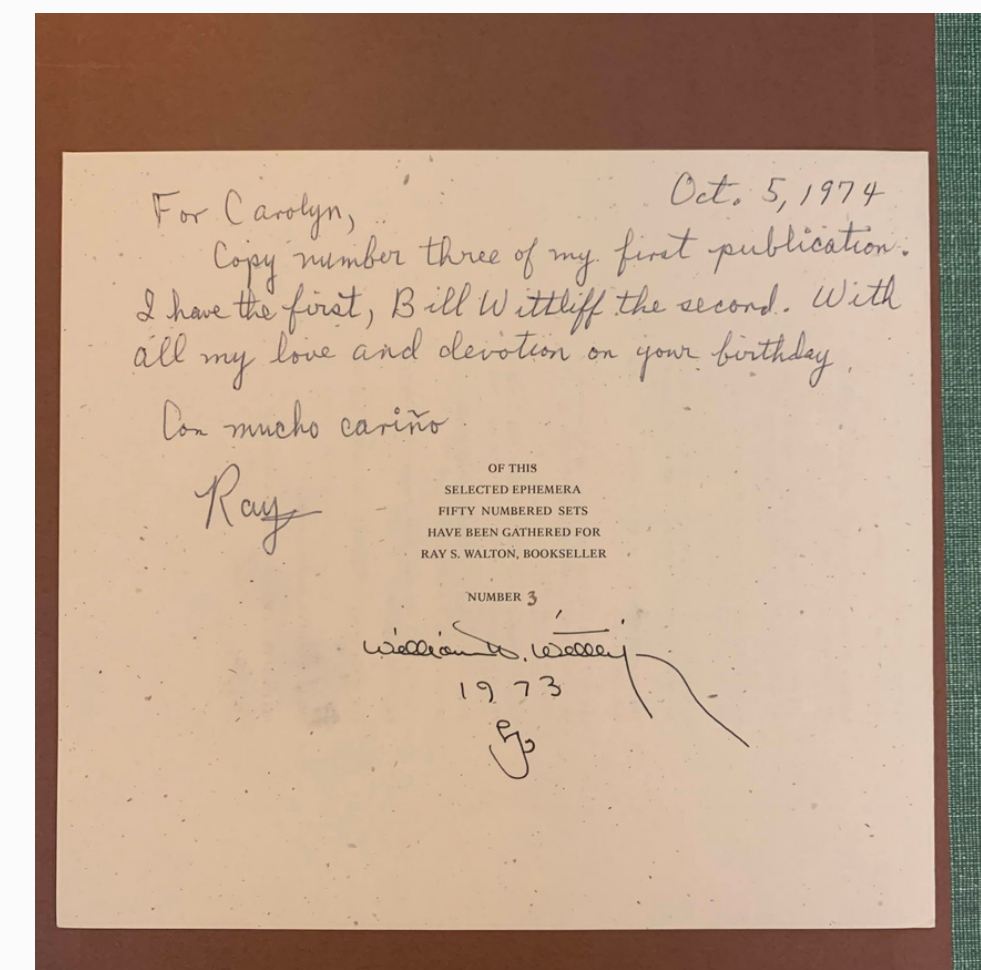 Oct. 5, 1974
For Carolyn,
Copy number three of my first publication.
I have the first, Bill Wittliff the second. With
all my love and devotion on your birthday.
Con mucho cariño
Ray
OF THIS
SELECTED EPHEMERA
FIFTY NUMBERED SETS
HAVE BEEN GATHERED FOR
RAY S. WALTON, BOOKSELLER
NUMBER 3
William D. Wittliff
1973